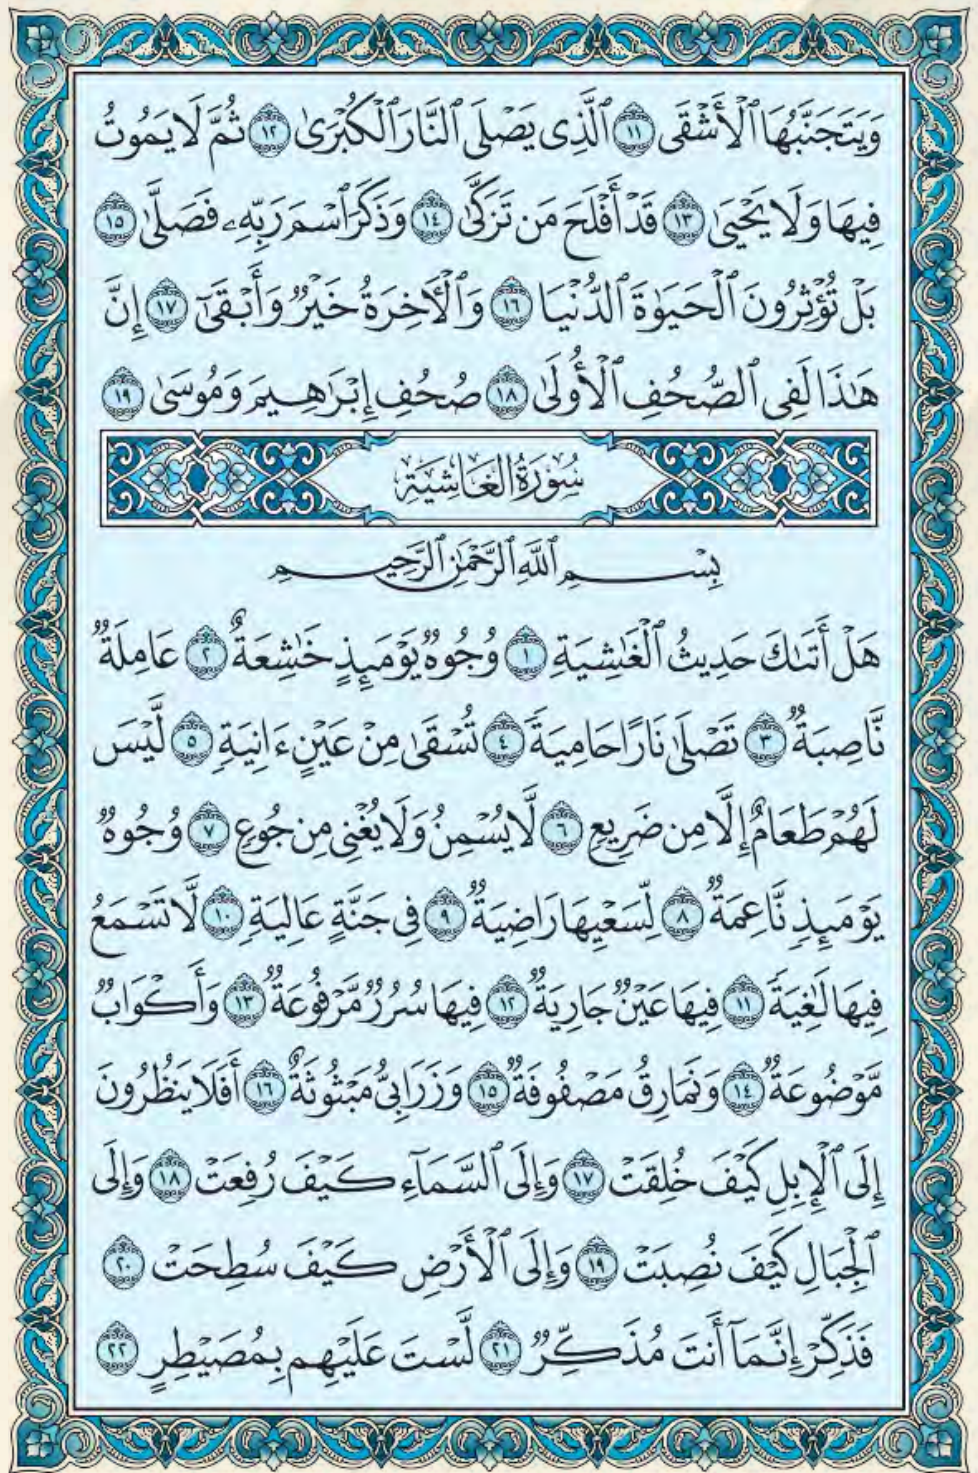 وَيَتَجَنَّبُهَا ٱلۡأَشۡقَى ١١ ٱلَّذِي يَصۡلَى ٱلنَّارَ ٱلۡكُبۡرَىٰ ١٢ ثُمَّ لَا يَمُوتُ
فِيهَا وَلَا يَحۡيَىٰ ١٣ قَدۡ أَفۡلَحَ مَن تَزَكَّىٰ ١٤ وَذَكَرَ ٱسۡمَ رَبِّهِۦ فَصَلَّىٰ ١٥
بَلۡ تُؤۡثِرُونَ ٱلۡحَيَوٰةَ ٱلدُّنۡيَا ١٦ وَٱلۡأٓخِرَةُ خَيۡرٞ وَأَبۡقَىٰٓ ١٧ إِنَّ
هَٰذَا لَفِي ٱلصُّحُفِ ٱلۡأُولَىٰ ١٨ صُحُفِ إِبۡرَٰهِيمَ وَمُوسَىٰ ١٩
سُورَةُ الغَاشِيَةِ
بِسۡمِ ٱللَّهِ ٱلرَّحۡمَٰنِ ٱلرَّحِيمِ
هَلۡ أَتَىٰكَ حَدِيثُ ٱلۡغَٰشِيَةِ ١ وُجُوهٞ يَوۡمَئِذٍ خَٰشِعَةٌ ٢ عَامِلَةٞ
نَّاصِبَةٞ ٣ تَصۡلَىٰ نَارًا حَامِيَةٗ ٤ تُسۡقَىٰ مِنۡ عَيۡنٍ ءَانِيَةٖ ٥ لَّيۡسَ
لَهُمۡ طَعَامٌ إِلَّا مِن ضَرِيعٖ ٦ لَّا يُسۡمِنُ وَلَا يُغۡنِي مِن جُوعٖ ٧ وُجُوهٞ
يَوۡمَئِذٖ نَّاعِمَةٞ ٨ لِّسَعۡيِهَا رَاضِيَةٞ ٩ فِي جَنَّةٍ عَالِيَةٖ ١٠ لَّا تَسۡمَعُ
فِيهَا لَٰغِيَةٗ ١١ فِيهَا عَيۡنٞ جَارِيَةٞ ١٢ فِيهَا سُرُرٞ مَّرۡفُوعَةٞ ١٣ وَأَكۡوَابٞ
مَّوۡضُوعَةٞ ١٤ وَنَمَارِقُ مَصۡفُوفَةٞ ١٥ وَزَرَابِيُّ مَبۡثُوثَةٌ ١٦ أَفَلَا يَنظُرُونَ
إِلَى ٱلۡإِبِلِ كَيۡفَ خُلِقَتۡ ١٧ وَإِلَى ٱلسَّمَآءِ كَيۡفَ رُفِعَتۡ ١٨ وَإِلَى
ٱلۡجِبَالِ كَيۡفَ نُصِبَتۡ ١٩ وَإِلَى ٱلۡأَرۡضِ كَيۡفَ سُطِحَتۡ ٢٠
فَذَكِّرۡ إِنَّمَآ أَنتَ مُذَكِّرٞ ٢١ لَّسۡتَ عَلَيۡهِم بِمُصَيۡطِرٍ ٢٢